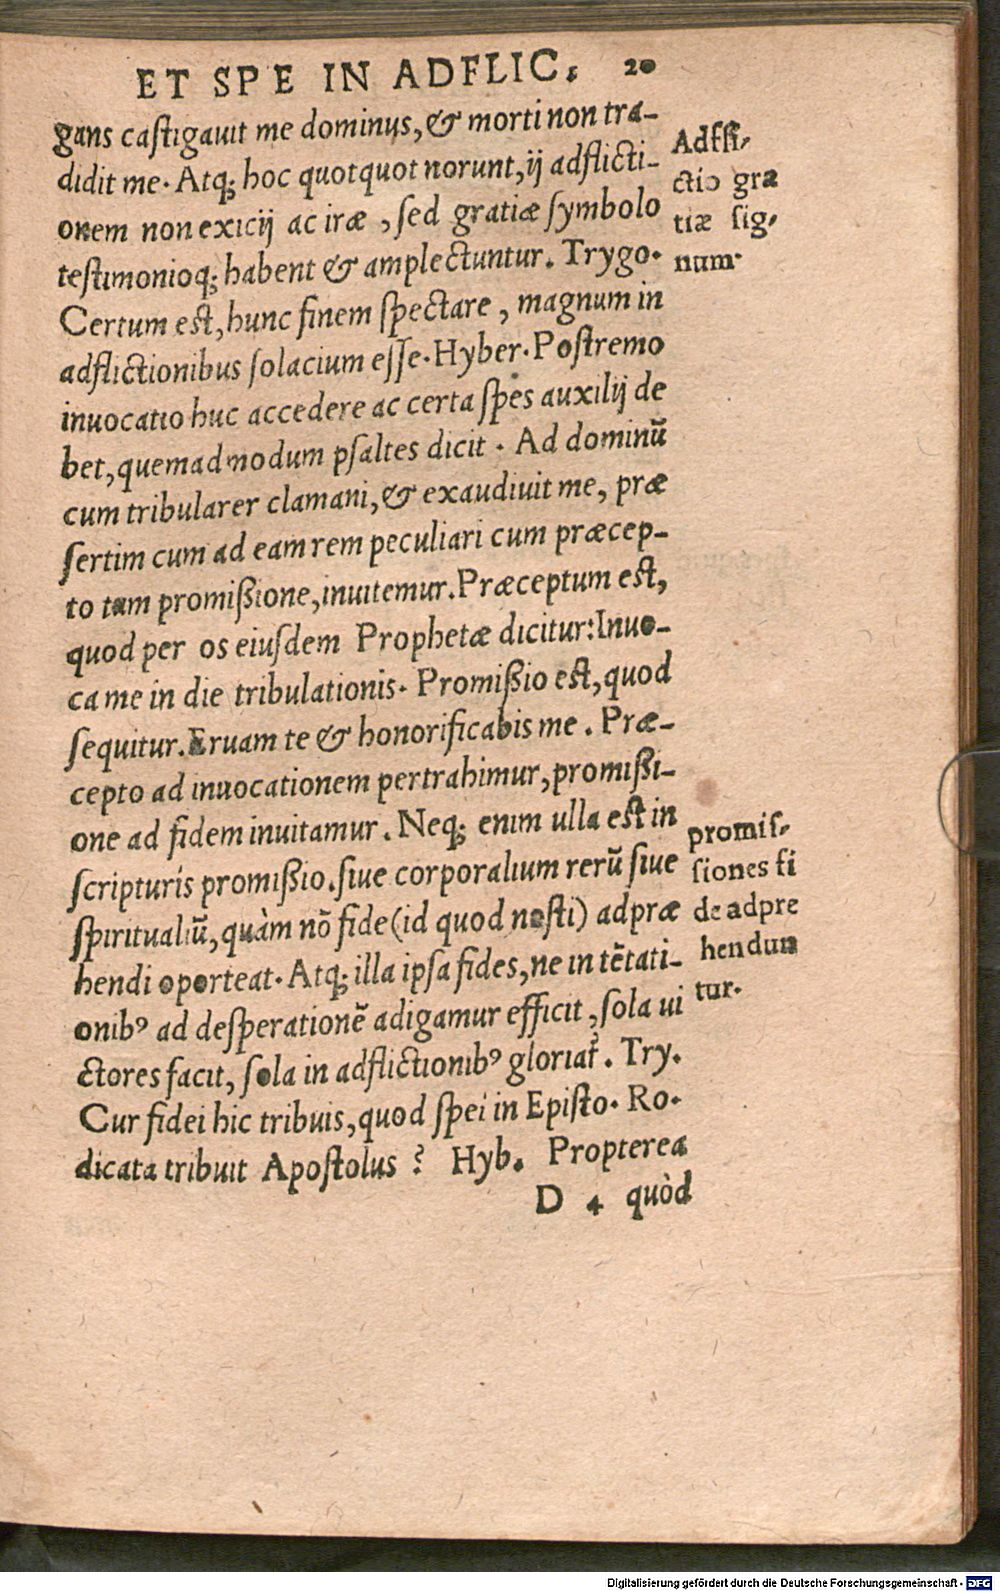 ET SPE IN ADFLIC. 20
gans castigauit me dominus, & morti non tra-
didit me. Atq; hoc quotquot norunt, ij adflicti-
onem non exicij ac iræ, sed gratiæ symbolo
testimonioq; habent & amplectuntur. Trygo.
Certum est, hunc finem spectare, magnum in
adflictionibus solacium esse. Hyber. Postremo
inuocatio huc accedere ac certa spes auxilij de
bet, quemadmodum psaltes dicit. Ad dominū
cum tribularer clamani, & exaudiuit me, præ
sertim cum ad eam rem peculiari cum præcep-
to tam promißione, inuitemur. Præceptum est,
quod per os eiusdem Prophetæ dicitur: Inuo-
ca me in die tribulationis. Promißio est, quod
sequitur. Eruam te & honorificabis me. Præ-
cepto ad inuocationem pertrahimur, promißi-
one ad fidem inuitamur. Neq; enim ulla est in
scripturis promißio. siue corporalium rerū siue
spiritualiū, quàm nō fide (id quod nosti) adpræ
hendi oporteat. Atq; illa ipsa fides, ne in tētati-
onibꝰ ad desperationē adigamur efficit, sola ui
ctores facit, sola in adflictionibꝰ gloriat̃. Try.
Cur fidei hic tribuis, quod spei in Episto. Ro.
dicata tribuit Apostolus? Hyb. Propterea
D 4 quòd
Adfli-
ctio gra
tiæ sig-
num.
promis-
siones fi
de adpre
hendun
tur.
Digitalisierung gefördert durch die Deutsche Forschungsgemeinschaft - DFG